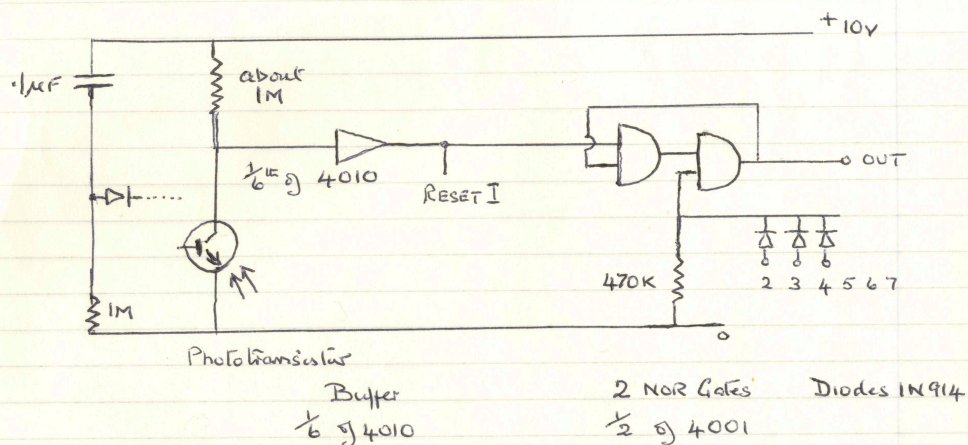 +10V
.1µF
about
1M
1/6 th of 4010
RESET I
OUT
1M
470K
2 3 4 5 6 7
0
Phototransistor
Buffer
1/6 of 4010
2 NOR Gates
1/2 of 4001
Diodes 1N914